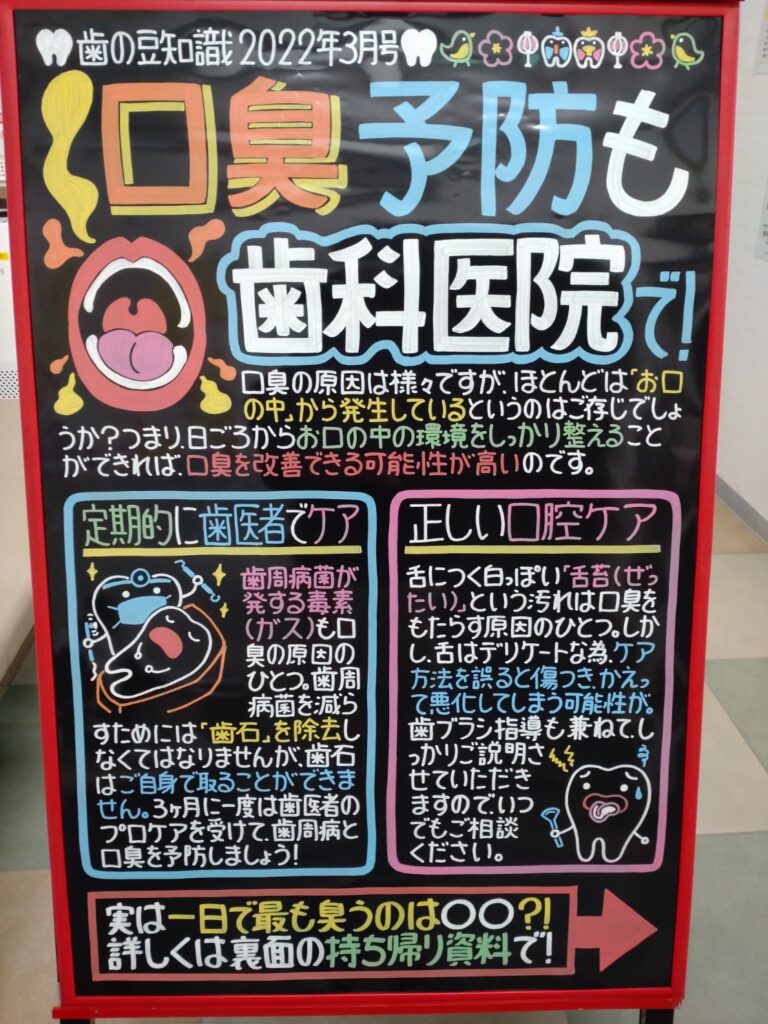 歯の豆知識 2022年3月号
口臭予防も
歯科医院で!
口臭の原因は様々ですが、ほとんどは「お口
の中」から発生しているというのはご存じでしょ
うか?つまり、日ごろからお口の中の環境をしっかり整えること
ができれば、口臭を改善できる可能性が高いのです。
定期的に歯医者でケア
歯周病菌が
発する毒素
(ガス)も口
臭の原因の
ひとつ。歯周
病菌を減ら
すためには「歯石」を除去し
なくてはなりませんが、歯石
はご自身で取ることができま
せん。3ヶ月に一度は歯医者の
プロケアを受けて、歯周病と
口臭を予防しましょう!
正しい口腔ケア
舌につく白っぽい「舌苔(ぜっ
たい)」という汚れは口臭を
もたらす原因のひとつ。しか
し、舌はデリケートな為、ケア
方法を誤ると傷つき、かえっ
て悪化してしまう可能性が。
歯ブラシ指導も兼ねて、し
っかりご説明さ
せていただき
ますのでいつ
でもご相談
ください。
実は一日で最も臭うのは〇〇?!
詳しくは裏面の持ち帰り資料で!